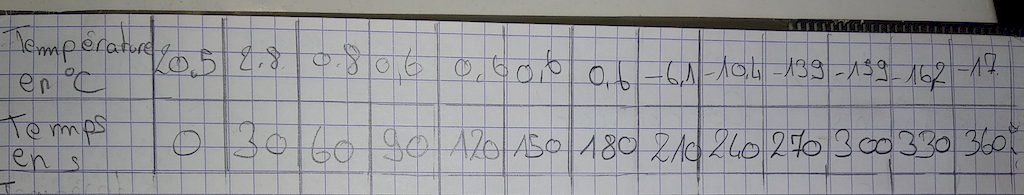 Température en °C 20,5 2.8 0.8 0,6 0,6 0,6 0,6 -6,1 -10,4 -139 -139 -162 -17
Temps en s 0 30 60 90 120 150 180 210 240 270 300 330 360